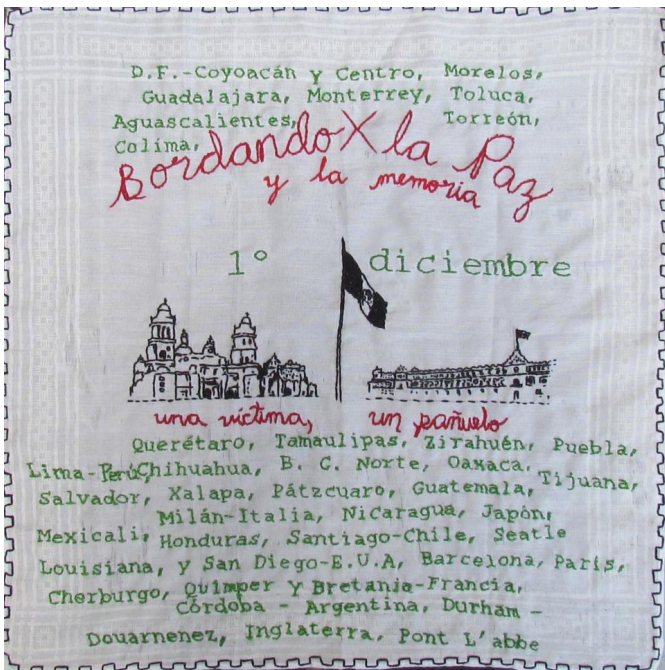 D.F.-Coyoacán y Centro, Morelos,
Guadalajara, Monterrey, Toluca,
Aguascalientes, Torreón,
Colima,
Bordando X la Paz
y la memoria
1° diciembre
una víctima, un pañuelo
Querétaro, Tamaulipas, Zirahuén, Puebla,
Lima-Perú, Chihuahua, B. C. Norte, Oaxaca, Tijuana,
Salvador, Xalapa, Pátzcuaro, Guatemala,
Milán-Italia, Nicaragua, Japón,
Mexicali, Honduras, Santiago-Chile, Seatle
Louisiana, y San Diego-E.U.A, Barcelona, París,
Cherburgo, Quimper y Bretania-Francia,
Córdoba - Argentina, Durham -
Douarnenez, Inglaterra, Pont L'abbe